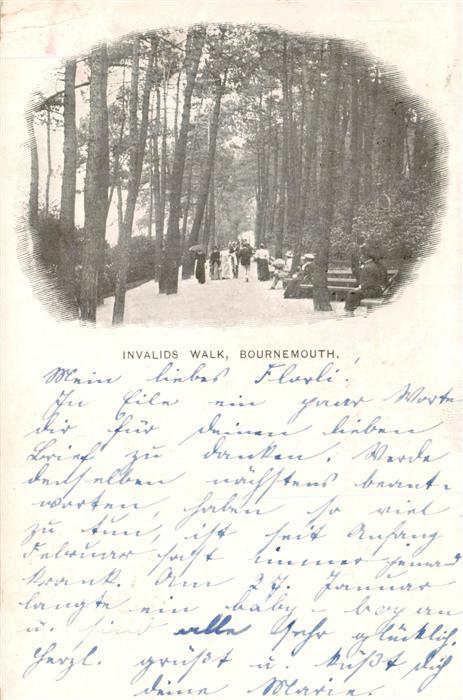 INVALIDS WALK, BOURNEMOUTH.
Mein liebes Florli!
In Eile ein paar Worte
dir für deinen lieben
Brief zu danken. Werde
denselben nächstens beant-
worten, haben so viel
zu tun, ist seit Anfang
Februar fast immer jemand
krank. Am 27. Januar
langte ein baby-boy an
u. sind alle sehr glücklich.
Herzl. grüßt u. küßt dich
deine Marie.